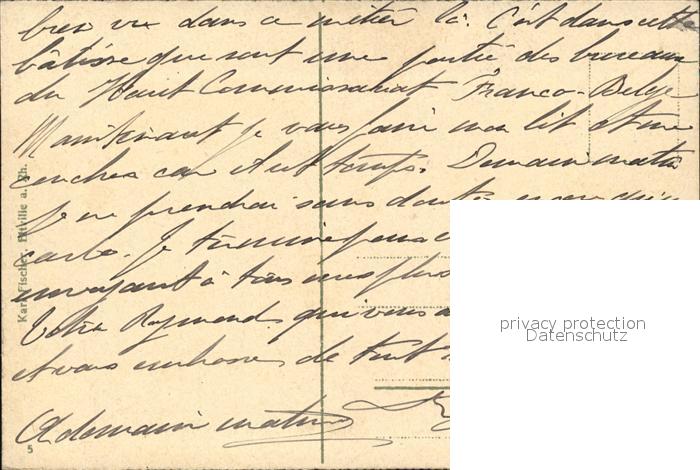 bien vu dans ce métier là. C'est dans cette
bâtisse que sont une partie des bureaux
du Haut Commissariat Franco-Belge
Maintenant je vais faire mon lit et me
coucher car il est temps. Demain matin
j'en prendrai sans doute
carte. Je termine
envoyant à tous mes plus
Votre Raymond qui vous
et vous embrasse de tout
A demain matin
Karl Fischer, Eltville a. Rh.
5
privacy protection
Datenschutz